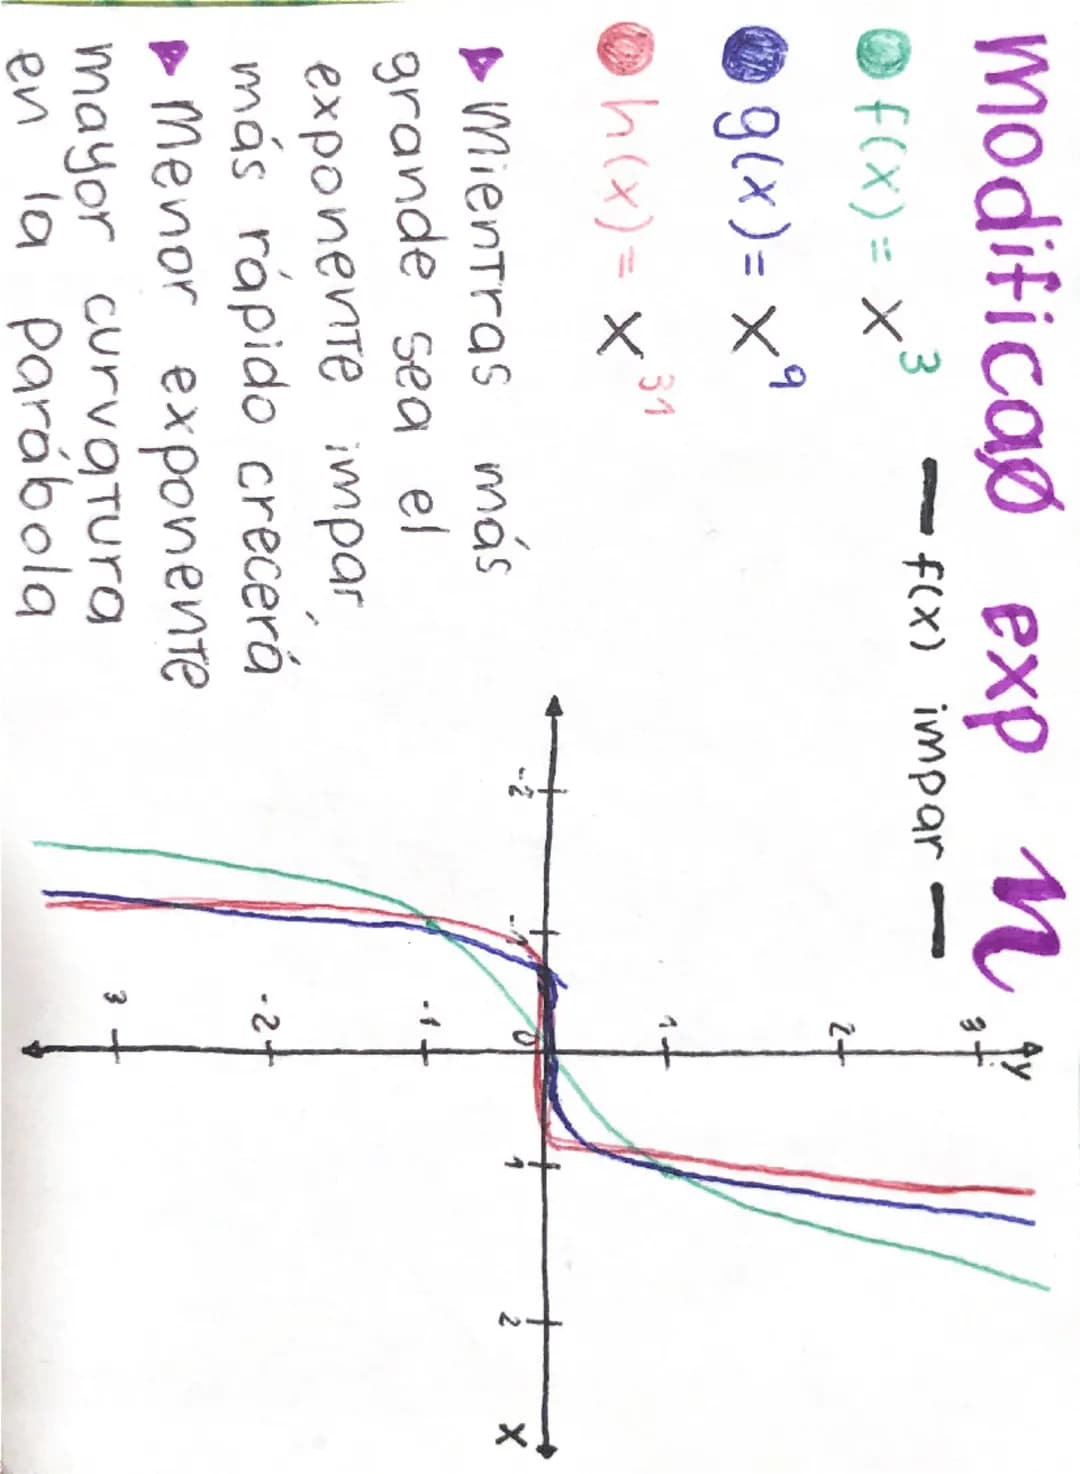 modificaø exp n
— f(x) impar —
f(x) = x³
g(x) = x⁹
h(x) = x³¹
▸ Mientras más
grande sea el
exponente impar,
más rápido crecerá
▸ Menor exponente
mayor curvatura
en la parábola
y
3
2
1
-2
-1
0
1
2
x
-1
-2
3